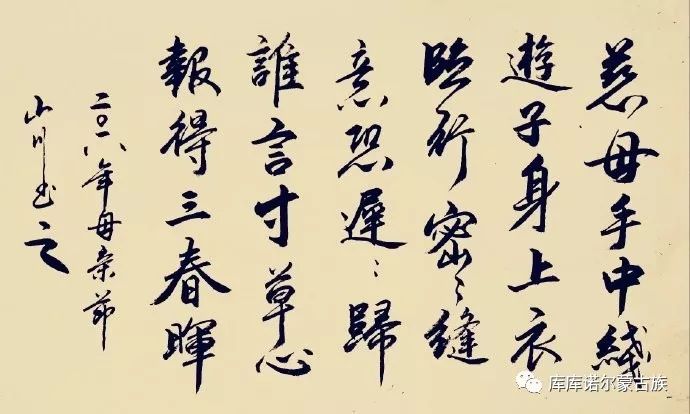 慈母手中綫
遊子身上衣
臨行密〻縫
意恐遲〻歸
誰言寸草心
報得三春暉
二〇一八年母亲節
山川书之
库库诺尔蒙古族